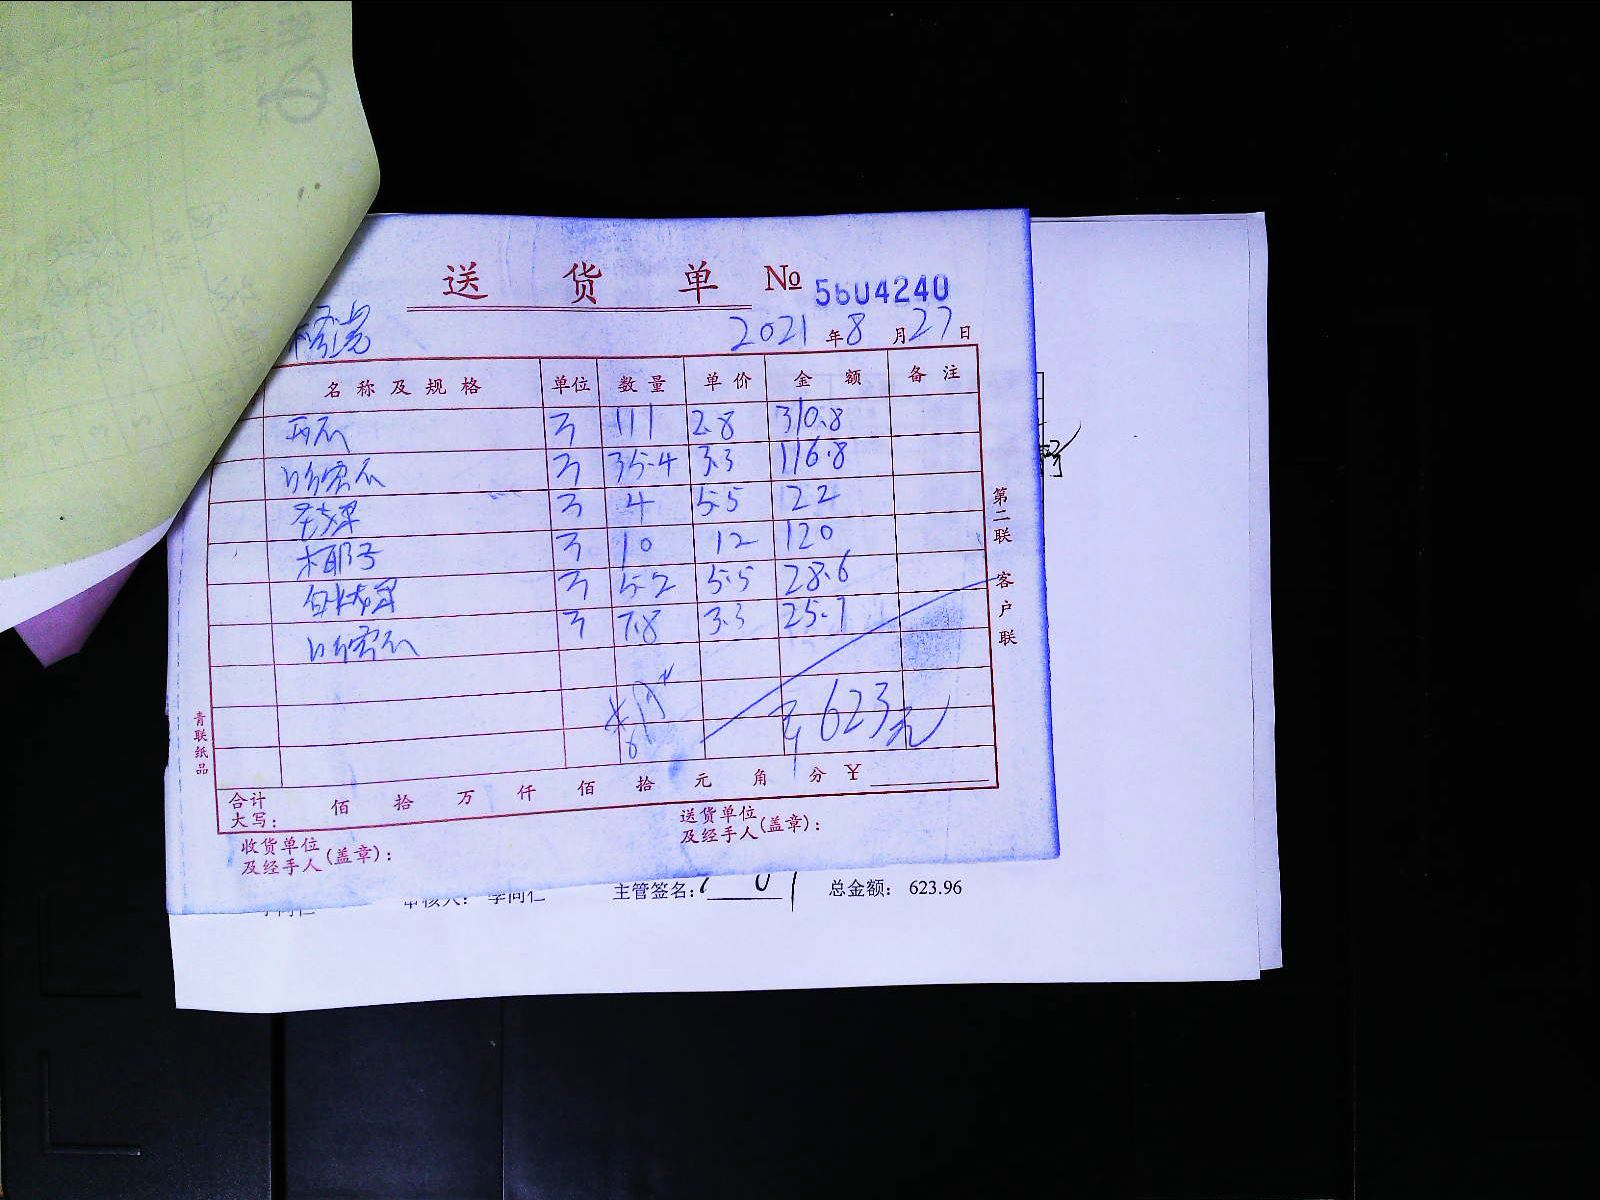 送 货 单 № 5604240
2021 年 8 月 27 日
名 称 及 规 格 单位 数 量 单 价 金 额 备 注
西瓜 斤 111 2.8 310.8
哈密瓜 斤 35.4 3.3 116.8
圣女果 斤 4 5.5 22
木耶子 斤 10 12 120
白火龙果 斤 5.2 5.5 28.6
哈密瓜 斤 7.8 3.3 25.7
￥623元
合计大写: 佰 拾 万 仟 佰 拾 元 角 分 ￥
收货单位及经手人(盖章):
送货单位及经手人(盖章):
第二联 客户联
青联纸品
主管签名: 总金额: 623.96